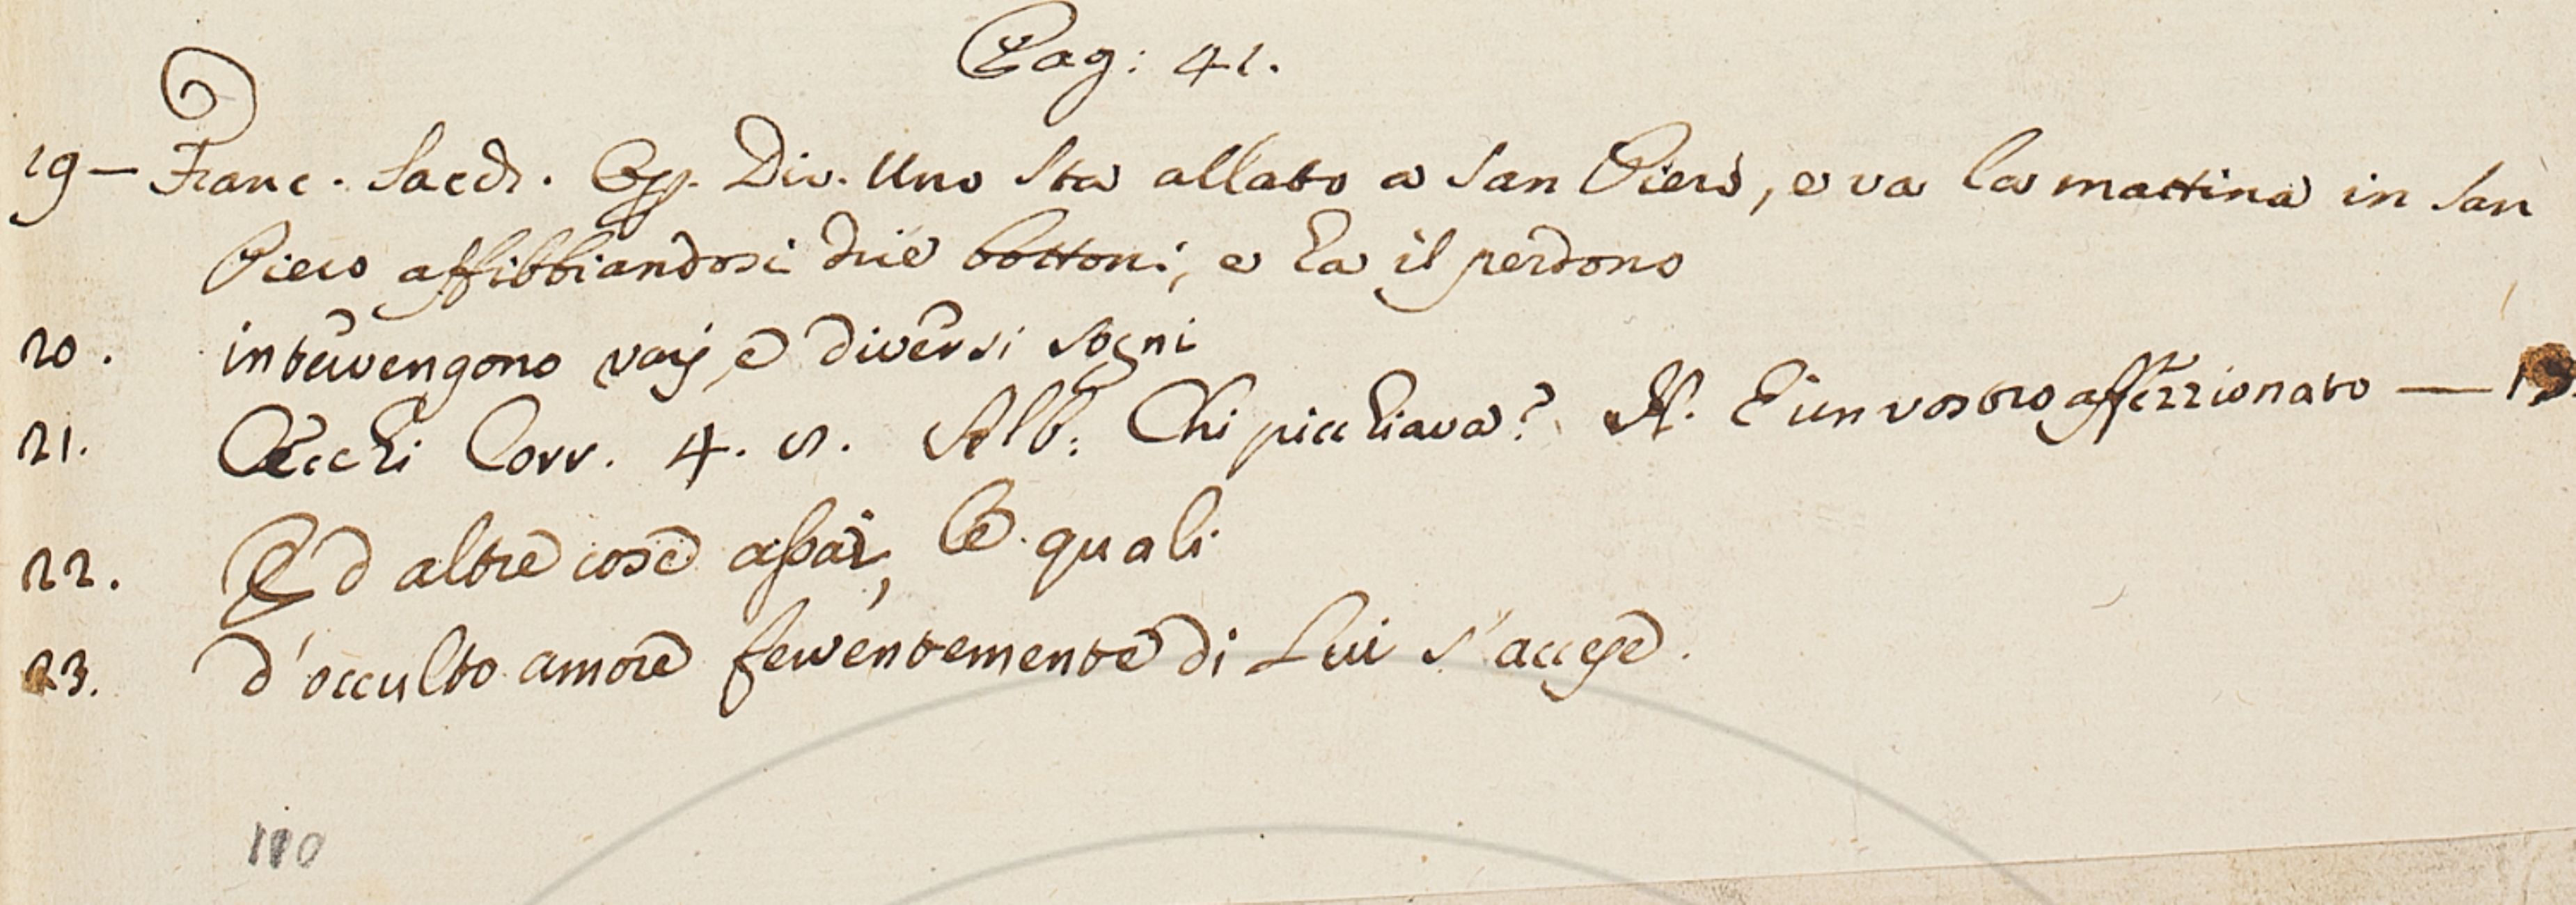 Pag: 41.
19 — Franc. Sacch. Op. Div. Uno sta allato a San Piero, e va la mattina in San
Piero affibbiandosi due bottoni, e ha il perdono
20. intervengono varj, e diversi sogni
21. Cecchi Corr. 4. 2. Alb. Chi picchiava? N. È un vostro affezzionato — 13.
22. Ed altre cose assai, le quali
23. d'occulto amore ferventemente di Lui s'accese.
110